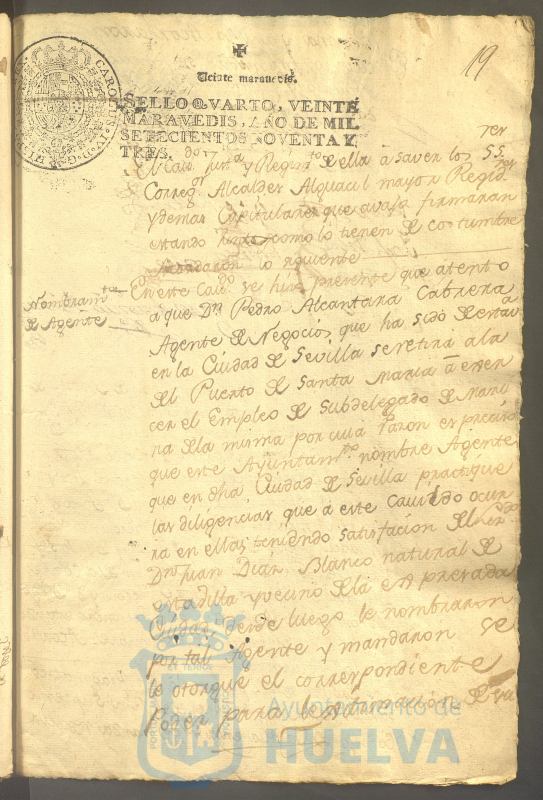 19
Veinte maravedis.
SELLO QVARTO, VEINTE
MARAVEDIS, AÑO DE MIL
SETECIENTOS NOVENTA Y
TRES.
El Cav.do Just.a y Regim.to de ella a saver los SS.res
Correg.or Alcaldes Alguacil mayor Regid.res
y demas Capitulares que avajo firmaran
estando juntos como lo tienen de costumbre
acordaron lo siguiente
Nombram.to
de Agente
En este Cav.do se hizo presente que atento
a que Dn Pedro Alcantara Cabrera
Agente de Negocios que ha sido de esta v.a
en la Ciudad de Sevilla se retira a la
del Puerto de Santa Maria a exer
cer el Empleo de Subdelegado de Mari
na de la misma por cuia razon es preciso
que este Ayuntam.to nombre Agente
que en dha Ciudad de Sevilla practique
las diligencias que a este Cavildo ocur
ra en ellas teniendo satisfacion de
Dn Juan Diaz Blanco natural de
esta dha villa y vecino de la expresada
Ciudad desde luego le nombraron
por tal Agente y mandaron se
le otorgue el correspondiente
Poder para lexitimacion de su
Ayuntamiento de
HUELVA